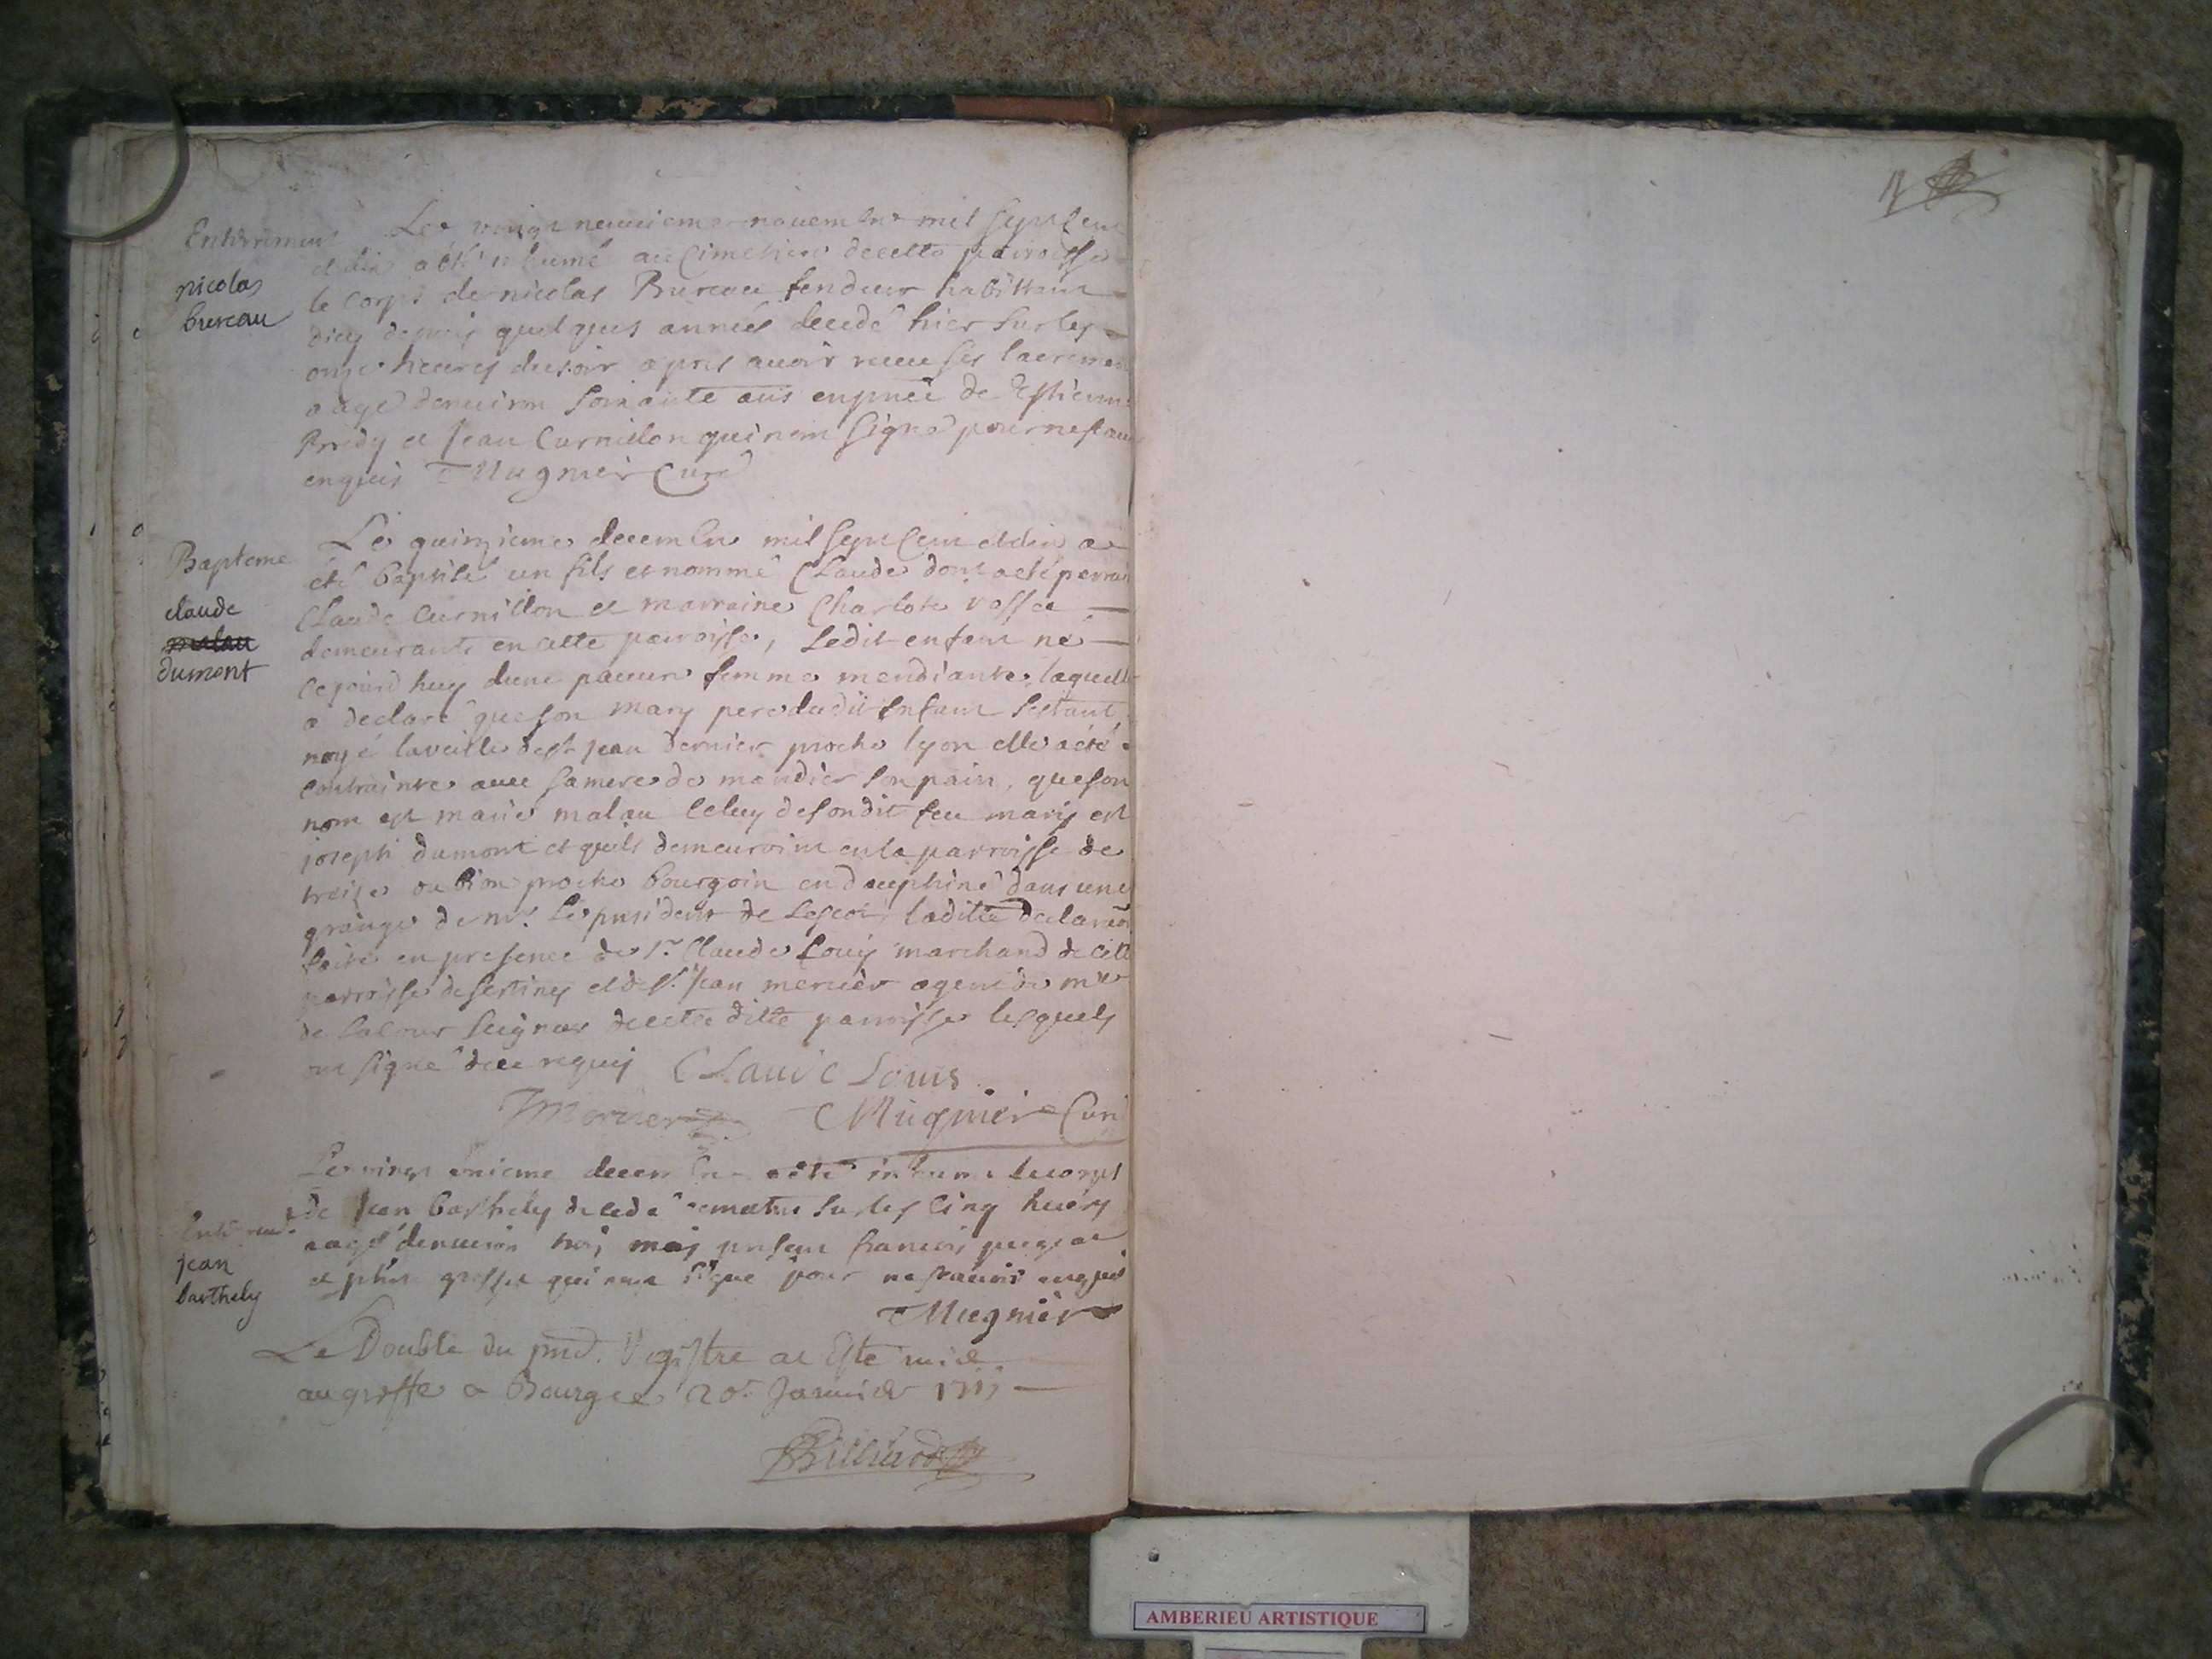 Enterrement
nicolas
bureau
Le vingt neuuieme nouembre mil sept cent
et dix a été inhumé au Cimetiere de cette paroisse
le corps de nicolas Bureau fendeur habittant
dicy depuis quelques années decedé hier sur les
onze heures du soir apres auoir receu ses sacremen
aagé denuiron soixante ans en pnce de Estienne
et Jean Curnillon qui nont signé pour ne scau
enquis Mugnier Curé
Bapteme
claude
dumont
Le quinzieme decembre mil sept Cent et dix a
été baptisé un fils et nommé Claude dont a eté parrain
Claude Curnillon et marraine Charlote
demeurants en cette paroisse, Ledit enfant né
cejourd huy dune pauure femme mendiante laquelle
a declaré que son mary pere dudit Enfant sestant
noyé la veille de st jean dernier proche lyon elle a été
contrainte auec sa mere de mandier son pain, que son
nom est marie malau Celuy de sondit feu mary est
joseph dumont et quils demeuroint en la parroisse de
proche bourgoin en dauphiné dans une
grange de mr. Le president de laditte declaraon
faite en presence de Sr. Claude Louis marchand de cette
parroisse de et de Sr. Jean mercier agent de mr
de Seigneur de cette ditte paroisse lesquels
ont signé de ce requis Claude Louis
JMercier Mugnier Curé
Enterrement
jean
barthely
Le vingt unieme decembre a été inhumé le corps
de Jean barthely decedé ce matin sur les cinq heures
aagé denuiron trois mois present francois
et qui nont signé pour ne scauoir enquis
Mugnier
Le Double du pnt. Registre a Esté mis
au greffe a Bourg le 20e Januier 1711
Billiard
AMBERIEU ARTISTIQUE